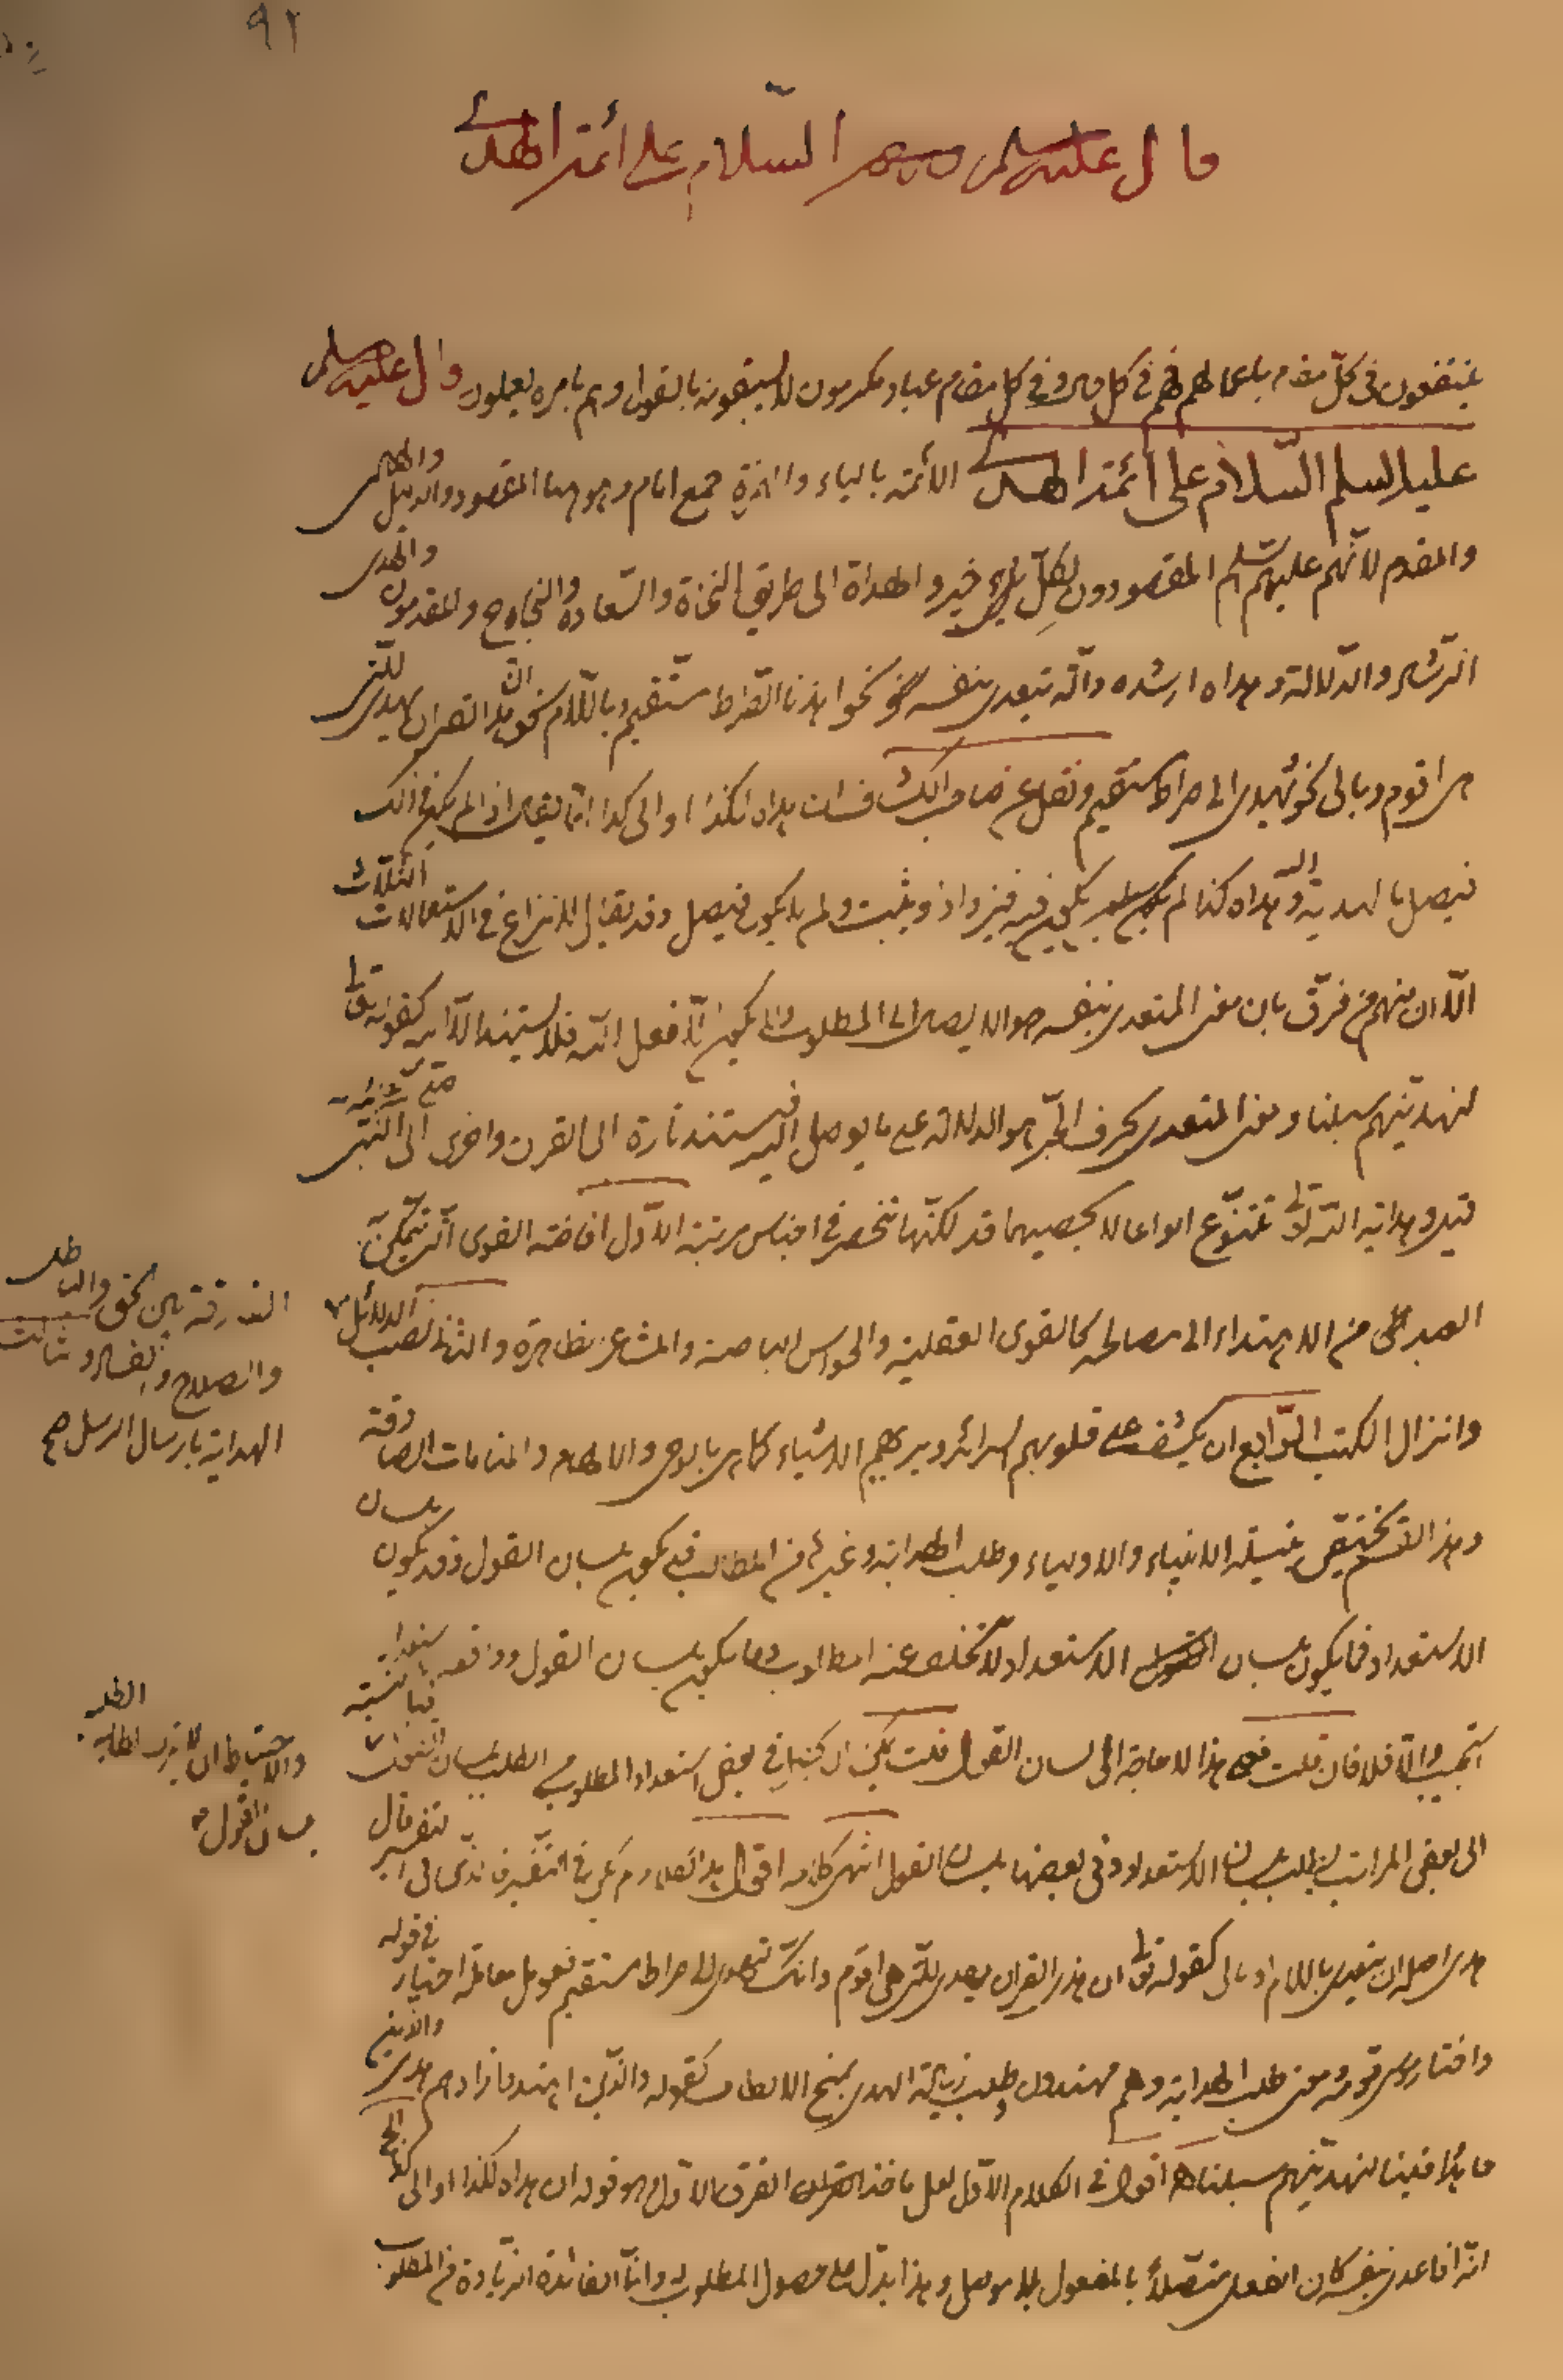 ٩٢
قال عليه السلام السلام على أئمة الهدى
ينتفعون في كلّ مقام باعمالهم فهم في كل حال وفي كل مقام عباد مكرمون لا يسبقونه بالقول وهم بامره يعملون قال عليه السلم
عليه السلم السّلام على أئمة الهدى الأئمّة بالياء والهمزة جمع امام وهو هنا المقصود والدليل والهادي
والمقدم لأنّهم عليهم السّلم المقصودون لكلّ خير والهداة الى طريق النجاة والسّعادة والنجاح والمقدمون والهدى
الرّشاد والدّلالة وهداه ارشده وانّه يتعدى بنفسه نحو اهدنا الصّراط المستقيم وباللّام نحو انّ هذا القرآن يهدي للّتي
هي اقوم وبالى نحو تهدي الى صراط مستقيم ونقل عن صاحب الكشاف ان هداه لكذا او الى كذا انّما يقال اذا لم يكن في ذلك
فيصل بالهداية اليه وهداه كذا لم يكن فيه فيزداد ويثبت ولم يكون فيصل وقد يقال لا نزاع في الاستعمالات الثلاث
الّا ان منهم من فرّق بان معنى المتعدي بنفسه هو الايصال الى المطلوب ولا يكون الّا فعل اللّه فلا يستند الّا اليه كقوله تعالى
لنهدينّهم سبلنا ومعنى المتعدي بحرف الجرّ هو الدلالة على ما يوصل اليه فيستند تارة الى القرآن واخرى الى النبي
قيل وهداية اللّه تعالى تتنوّع انواعا لا يحصيها عد لكنّها تنحصر في اجناس مرتبة الاوّل افاضة القوى الّتي يتمكّن
العبد بها من الاهتداء الى مصالحه كالقوى العقلية والحواس الباطنة والمشاعر الظاهرة والثاني نصب الدلائل
الفارقة بين الحق والباطل
والصلاح والفساد والثالث
الهداية بارسال الرسل صح
وانزال الكتب الرّابع ان يكشف على قلوبهم السرائر ويريهم الاشياء كما هي بالوحي والالهام والمنامات الصادقة
وهذا القسم يختص بنيله الانبياء والاولياء وطلب الهداية وغيرها من المطالب قد يكون بلسان القول وقد يكون بلسان
الاستعداد فما يكون بلسان الاستعداد لا يتخلف عنه المطلوب وما يكون بلسان القول ووافقه استعداد
استجيب والّا فلا فان قلت فعلى هذا لا حاجة الى لسان القول قلت يمكن ان يكون في بعض استعداد المطلوب الطلب بلسان القول
والاحتياط ان لا يترك الطلب
بلسان القول
الى بعض المراتب يطلب بلسان الاستعداد وفي بعضها بلسان القول انتهى كلامه اقول
هدى اصله ان يتعدى باللام او بالى كقوله تعالى ان هذا القرآن يهدي للّتي هي اقوم وانّك لتهدي الى صراط مستقيم فعومل معاملة اختار في قوله
واختار موسى قومه ومعنى طلب الهداية وهم مهتدون طلب زيادة الهدى بمنح الالطاف كقوله والّذين اهتدوا زادهم هدى والذين
جاهدوا فينا لنهدينّهم سبلنا اقول في الكلام الاوّل لعل ماخذ الفرق الاوّل وهو قوله ان هداه لكذا او الى كذا
انّه اذا عدي بنفسه كان الفعل متصلاً بالمفعول بلا موصل وهذا يدلّ على حصول المطلوب له وانّما الفائدة الزيادة من المطلوب